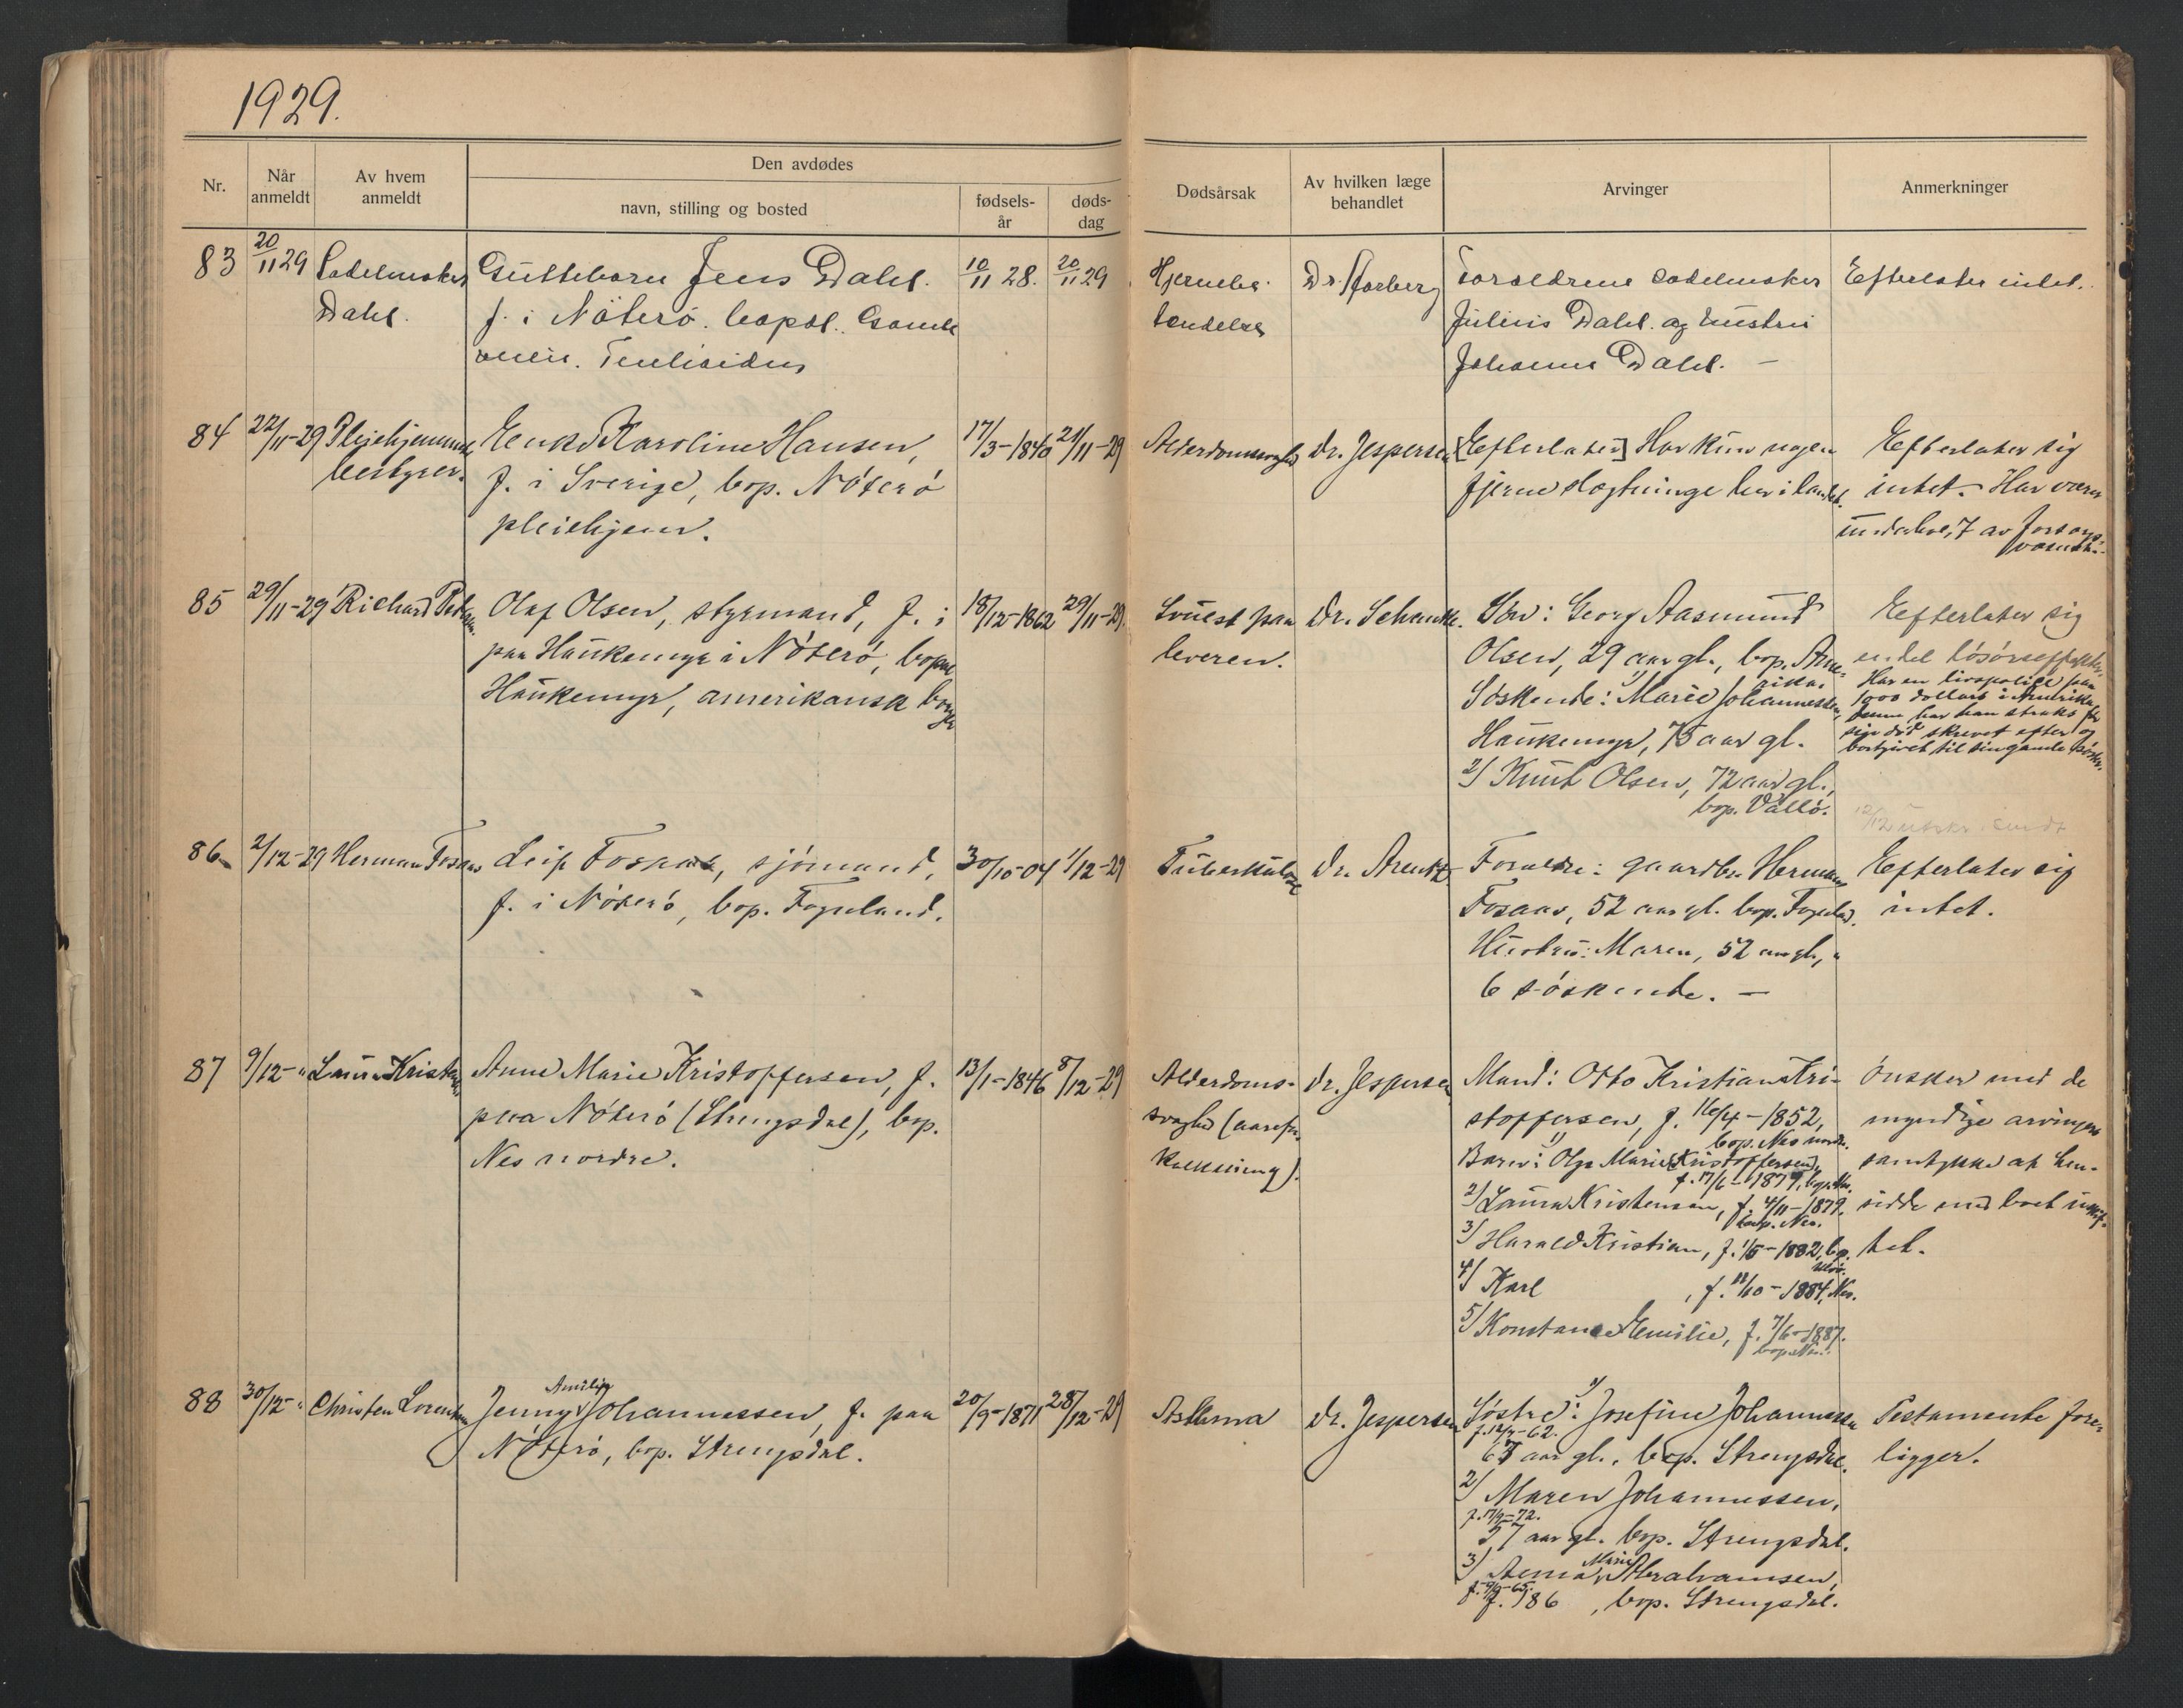 1929.
Nr.
Når anmeldt
Av hvem anmeldt
Den avdødes
navn, stilling og bosted
fødsels-år
døds-dag
Dødsårsak
Av hvilken læge behandlet
Arvinger
Anmerkninger
83
20/11 29
Sadelmaker
Dahl.
Guttebarn Jens Dahl.
f. i Nøterø. bopæl. Gamle
veien. Teieheiden
10/11 28.
20/11 29
Hjernebe-
tendelse
Dr. Harberg
Foreldrene Sadelmaker
Julius Dahl. og hustru
Johanne Dahl. —
Efterlater intet.
84
22/11-29
Pleiehjemmets
bestyrer.
Enke Karoline Hansen,
f. i Sverige, bop. Nøterø
pleiehjem.
17/3-1846
21/11-29
Alderdomssvaghet
Dr. Jespersen
[Efterlater] Har kun nogen
fjerne slægtninge her i landet.
Efterlater sig
intet. Har været
underhold av forsorgs-
væsenet.
85
29/11-29
Richard Pedersen.
Olaf Olsen, styrmand, f. i
paa Haukemyr i Nøterø, bopæl
Haukemyr, amerikansk borger
18/12-1862
29/11-29.
Svulst paa
leveren.
Dr. Schencke.
Søn: Georg Aasmund
Olsen, 29 aar gl., bop. Ame-
rika.
Søskende: 1) Marie Johannessen,
Haukemyr, 75 aar gl.
2) Knut Olsen, 72 aar gl.,
bop. Vallø.
Efterlater sig
en del løsøreeffekter.
Har en livspolice paa
1000 dollars i Amerika,
denne har han straks før
sin død skrevet efter og
bortgivet til sin gamle søster.
86
2/12-29
Herman Fosaas
Leif Fosaas, sjømand,
f. i Nøterø, bop. Fogeland.
30/10-04
1/12-29
Tuberkulose
Dr. Arentz
Forældre: gaardbr. Herman
Fosaas, 52 aar gl. bop. Fogeland.
Hustru: Maren, 52 aar gl.,
6 søskende. —
Efterlater sig
intet.
87
9/12-"
Laura Kristensen
Anne Marie Kristoffersen, f.
paa Nøterø (Strengsdal), bop.
Nes nordre.
13/1-1846
8/12-29
Alderdoms-
svaghet (aarefor-
kalkning).
Dr. Jespersen
Mand: Otto Kristian Kri-
stoffersen, f. 16/4-1852,
bop. Nes nordre.
Barn: 1) Olga Marie Kristoffersen,
f. 17/6-1877, bop. Nes.
2) Laura Kristensen, f. 4/11-1879,
bop. Nes.
3) Harald Kristian, f. 1/5-1882, bop.
4) Karl , f. 11/10-1884, Nes.
5) Konstanse Emilie, f. 7/6-1887.
bop. Nes.
Ønsker med de
myndige arvingers
samtykke at hen-
sidde med boet uskif-
tet.
88
30/12-"
Christen Lorentsen
Jenny Amilie Johannessen, f. paa
Nøterø, bop. Strengsdal.
20/9-1871
28/12-29
Asthma
Dr. Jespersen
Søstre: 1) Josefine Johannessen
67 aar gl., bop. Strengsdal.
2) Maren Johannessen,
f. 17/9-72.
57 aar gl. bop. Strengsdal.
3) Anna Marie Abrahamsen,
f. 186 , bop. Strengsdal.
Testamente fore-
ligger.